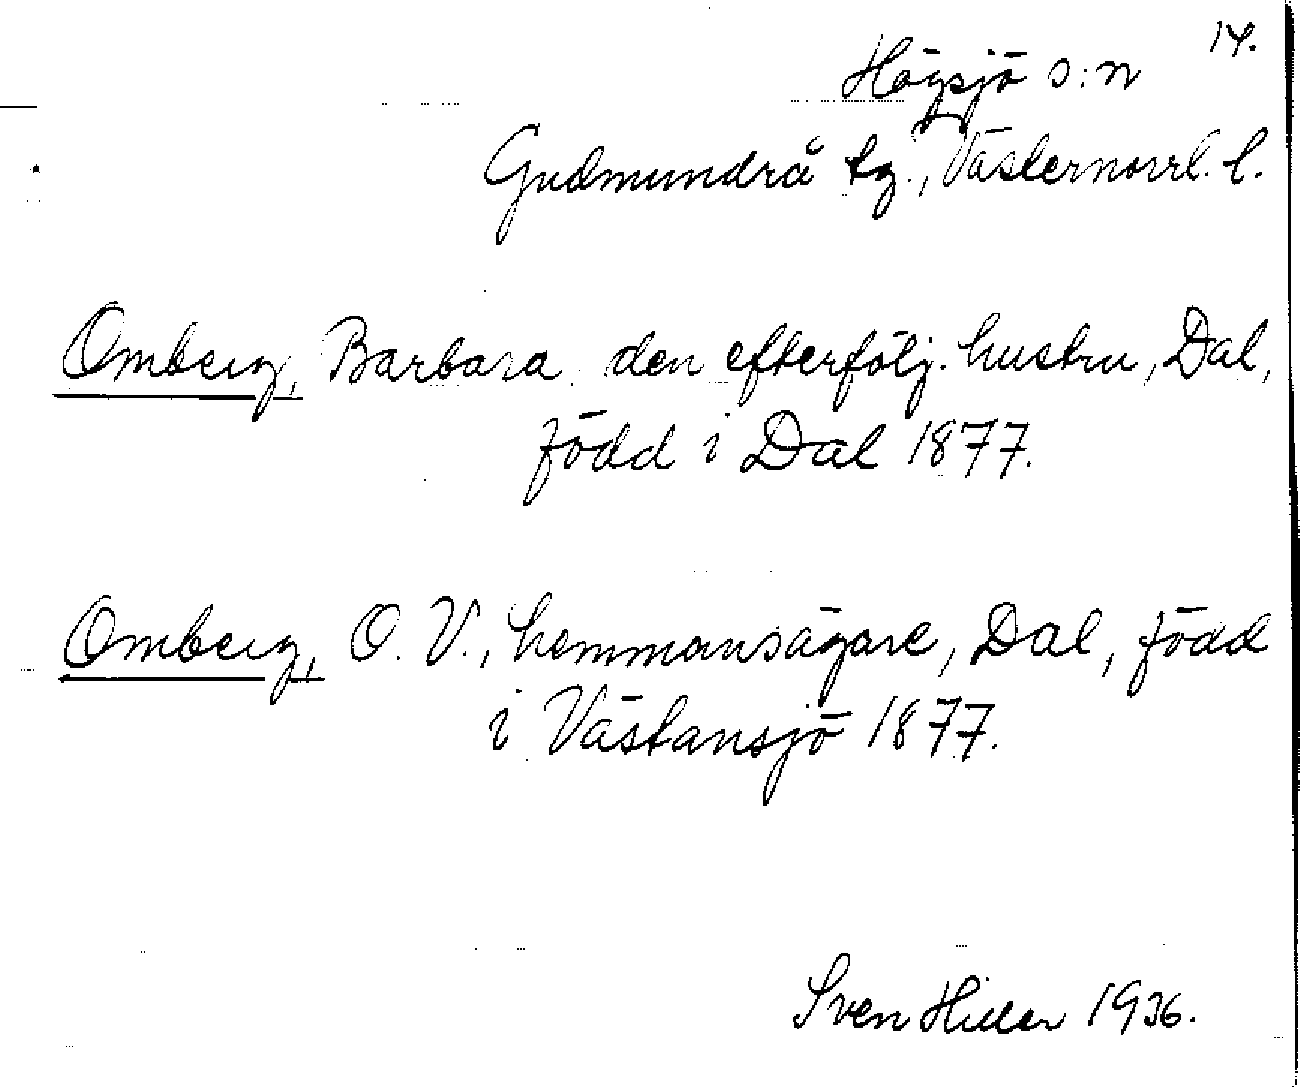 14.
Högsjö s:n
Gudmundrå tg., Västernorrl. l.
Omberg, Barbara den efterfölj. hustru, Dal,
född i Dal 1877.
Omberg, O. V., hemmansägare, Dal, född
i Västansjö 1877.
Sven Hiller 1936.